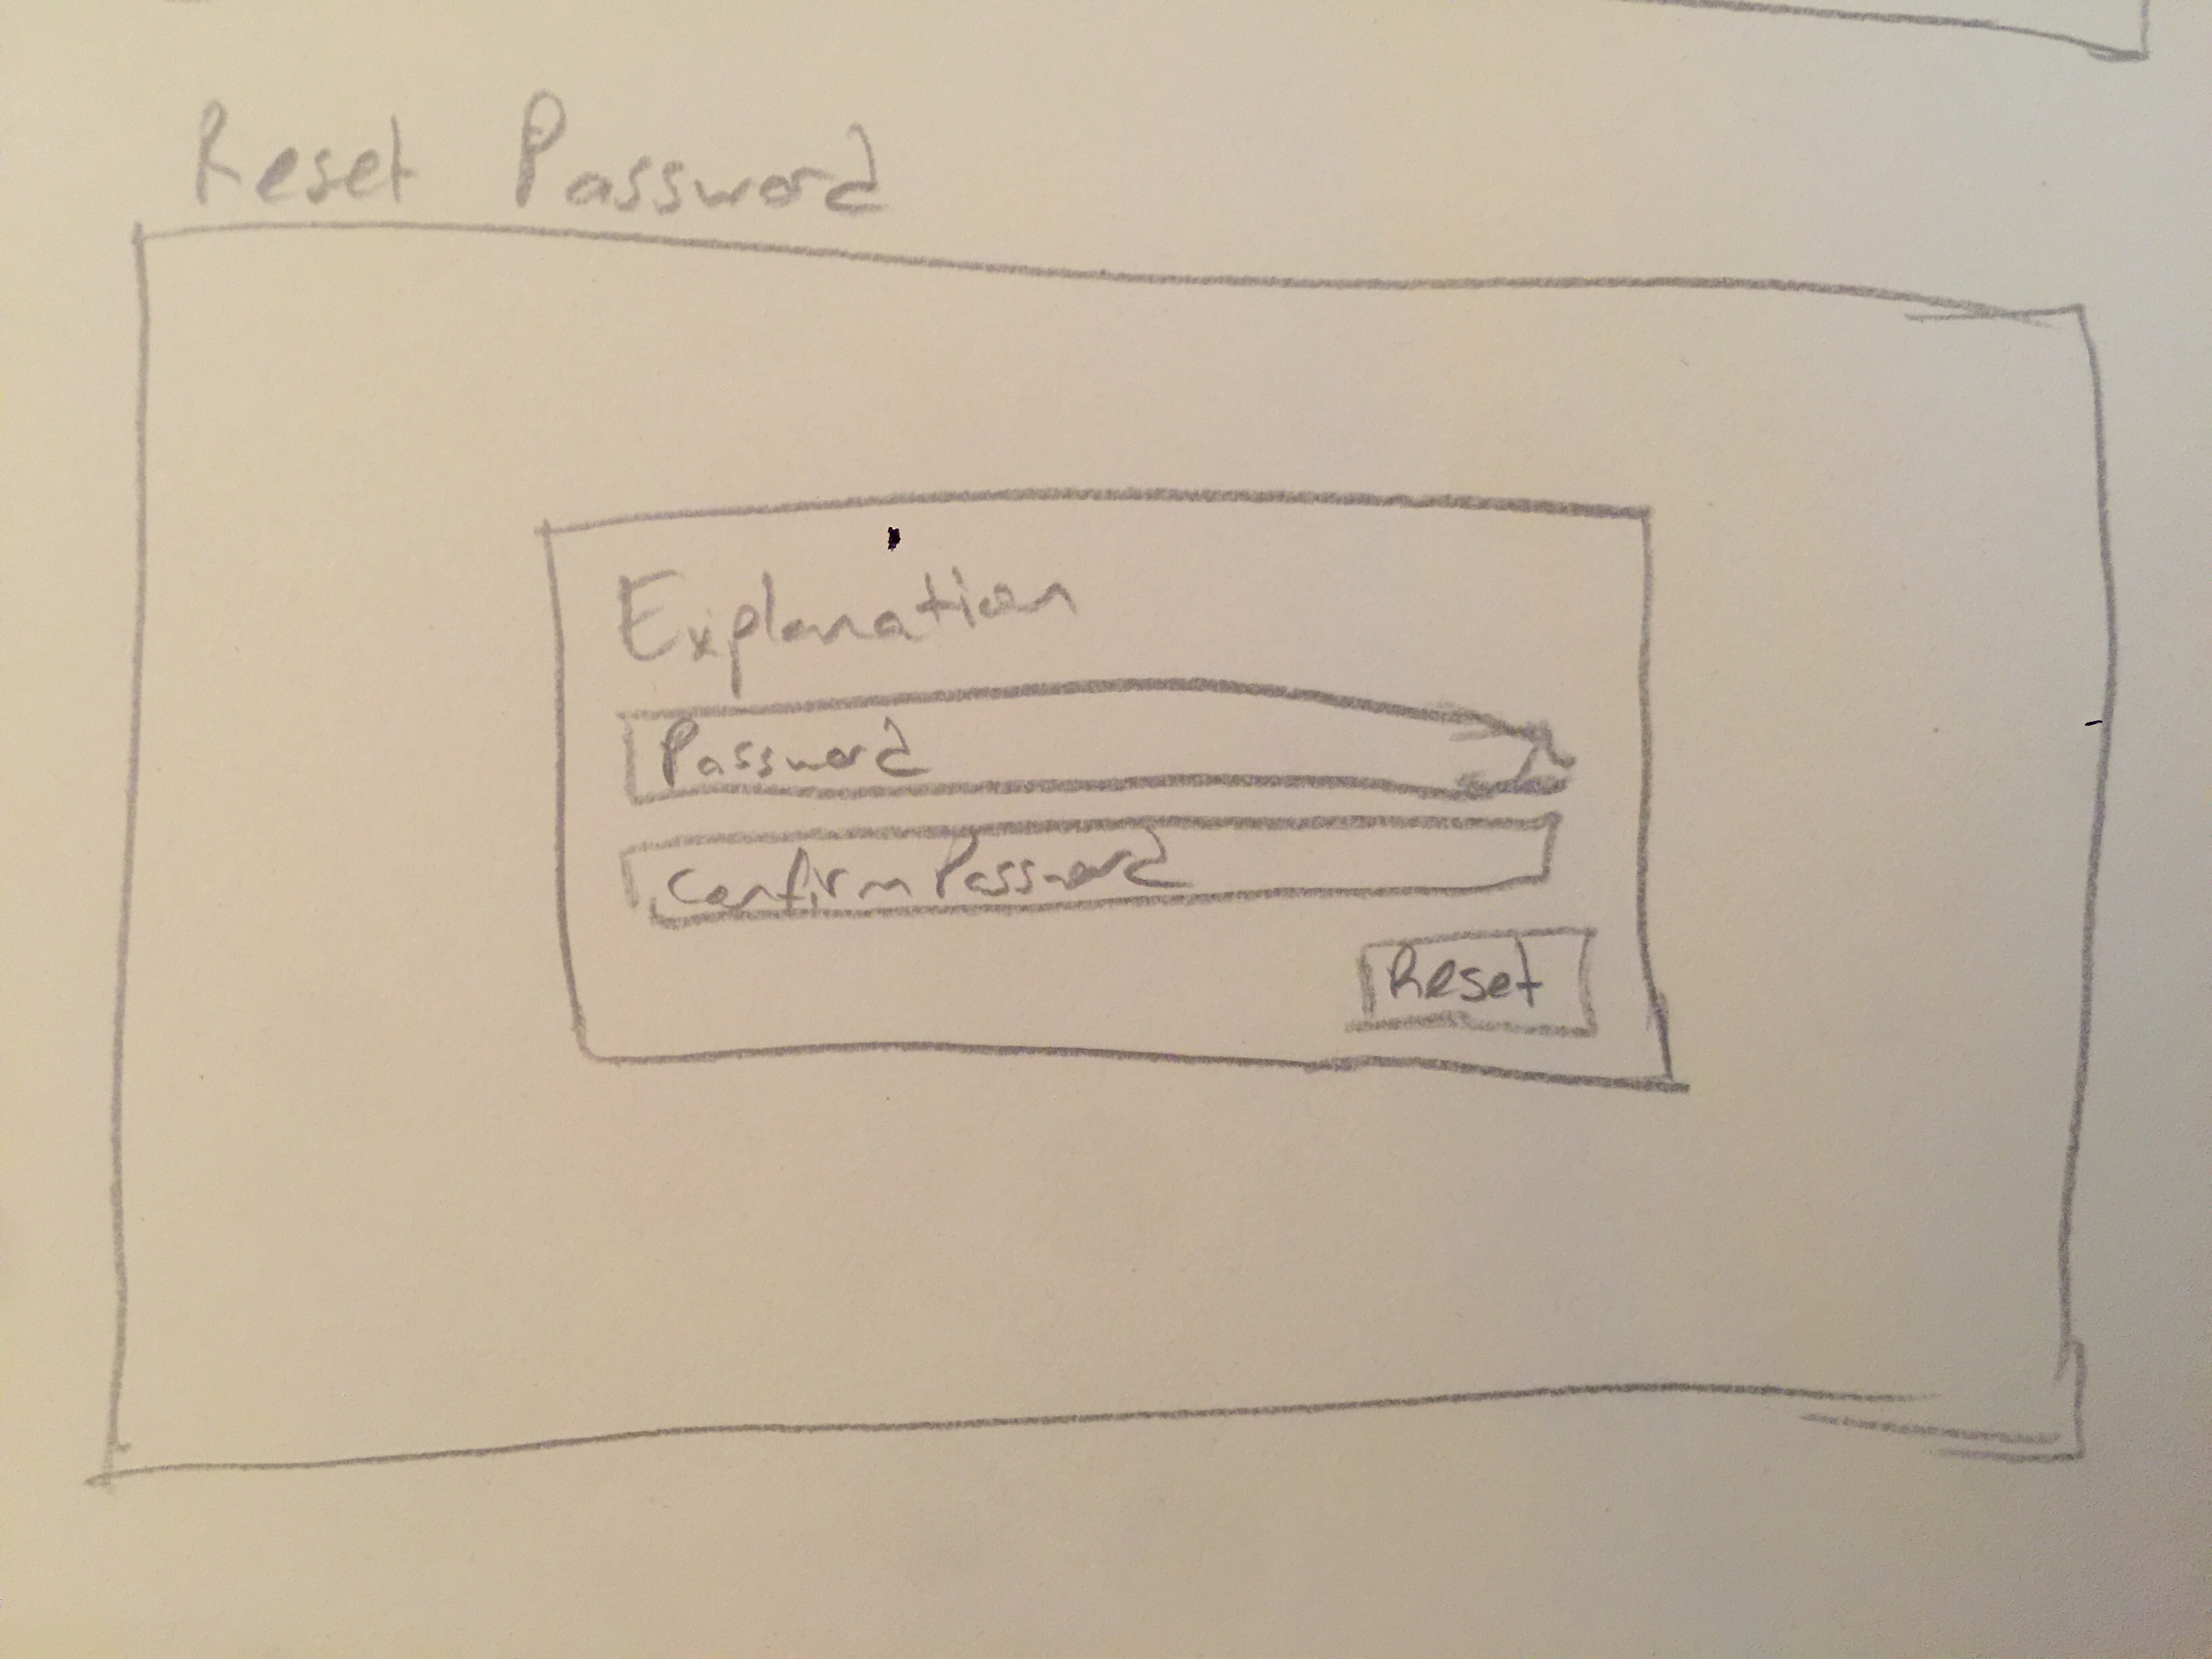 Reset Password
Explanation
Password
Confirm Password
Reset